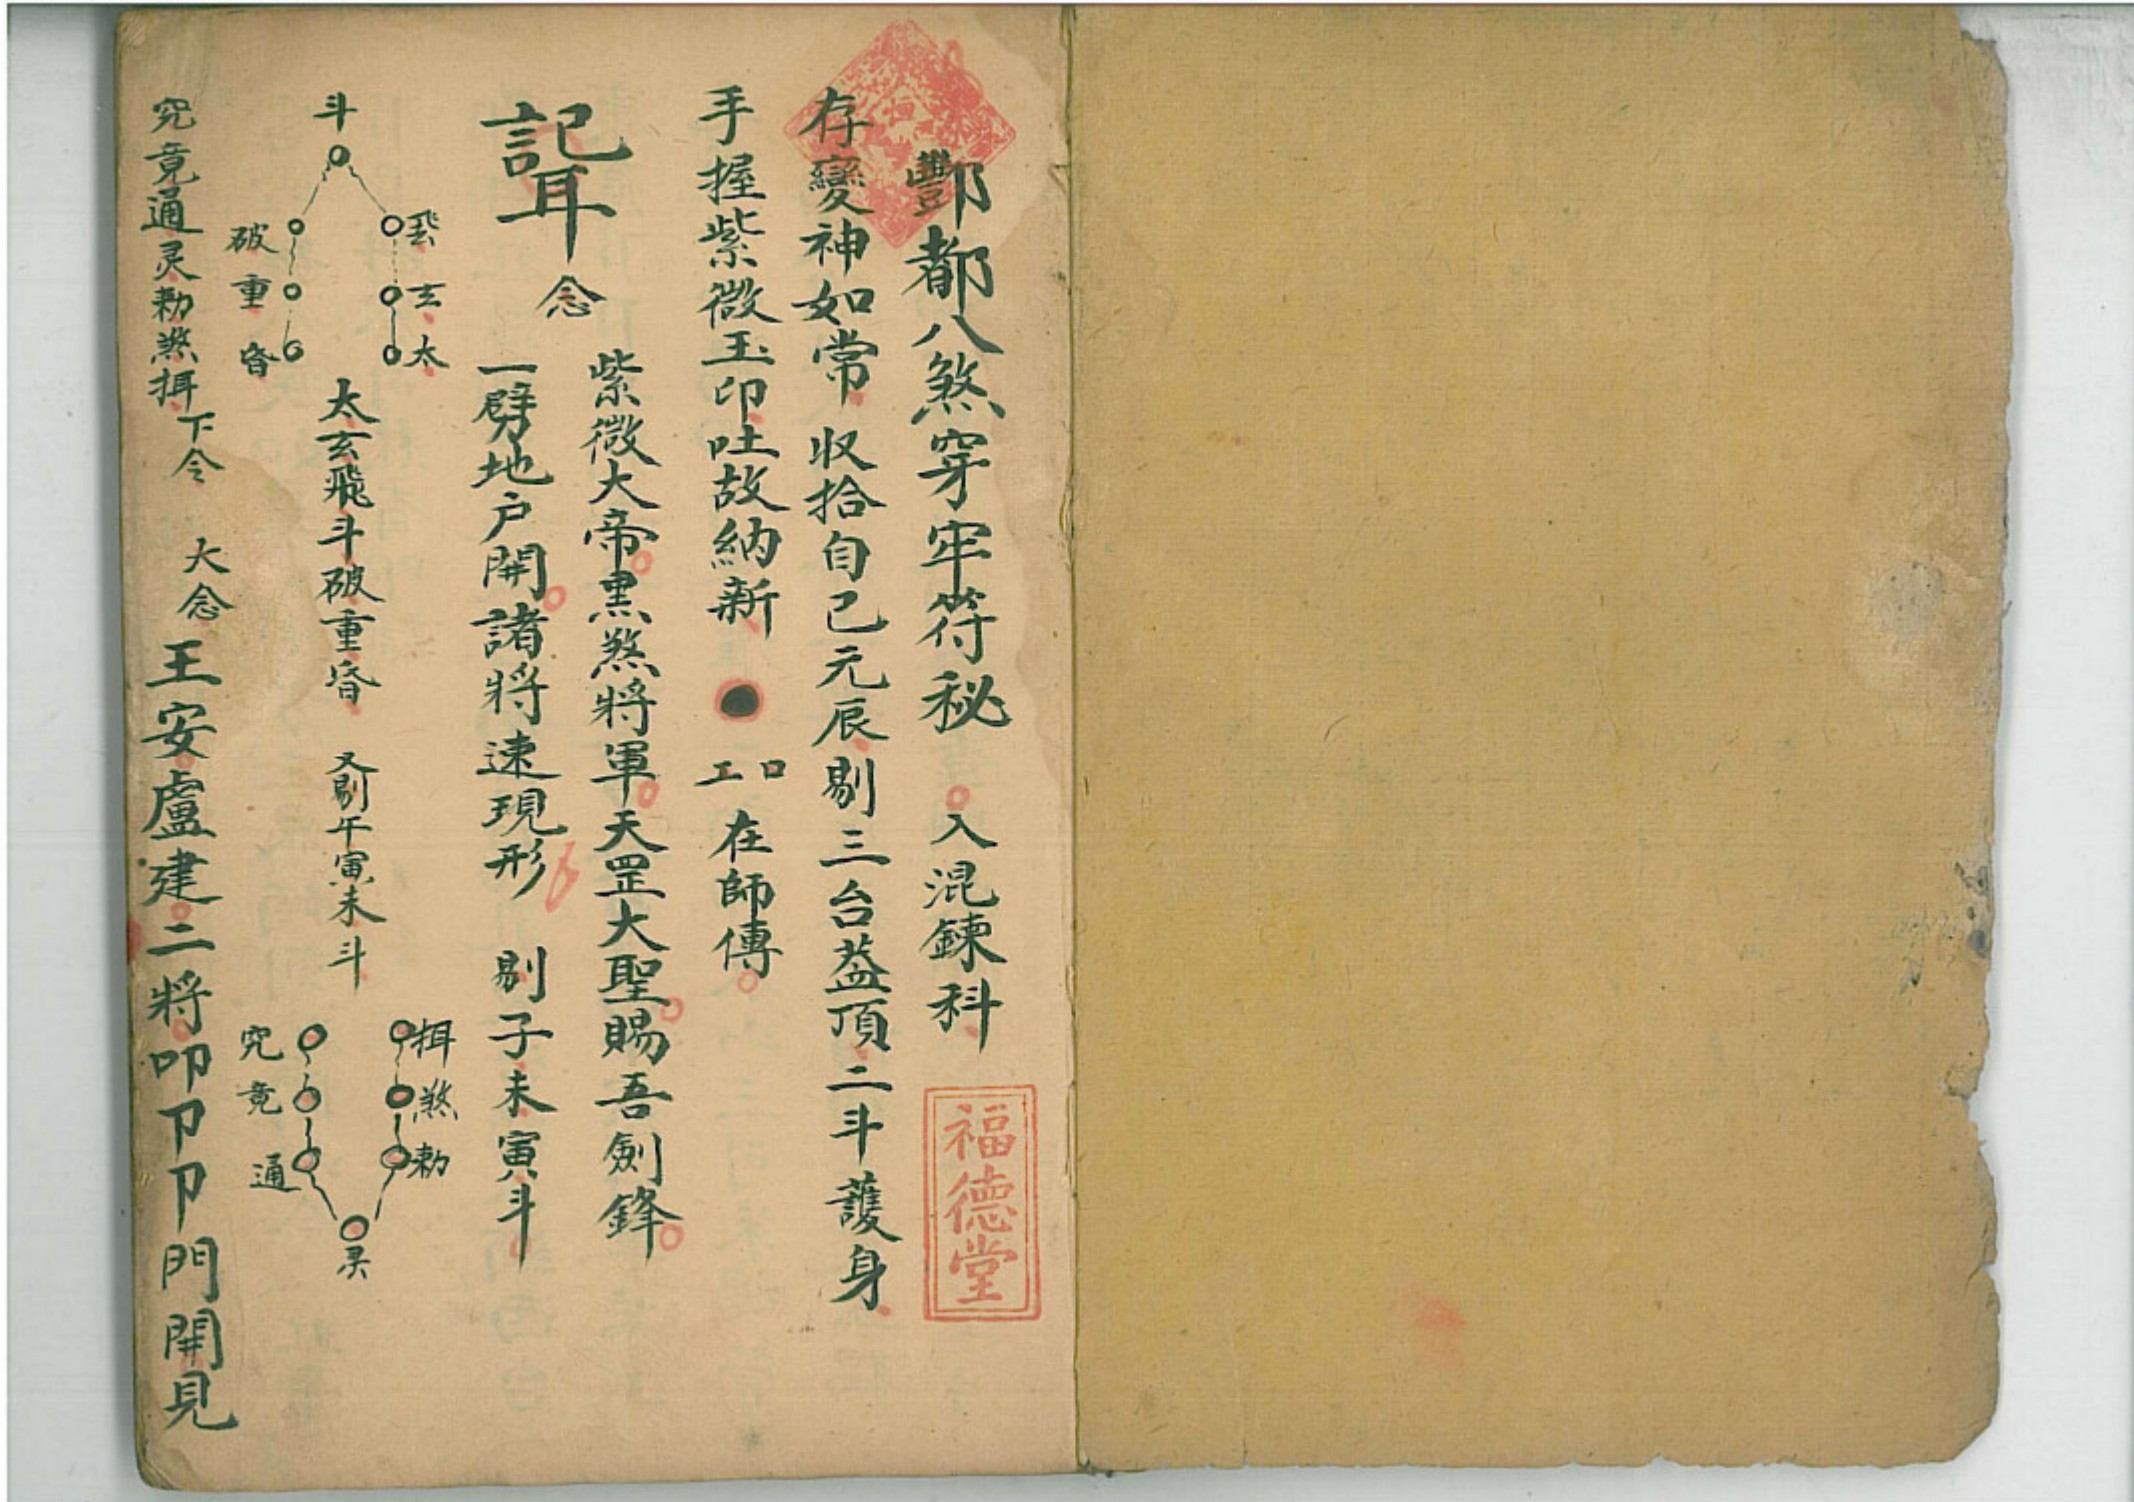 酆都八煞穿牢符秘 入混鍊科
福德堂
存變神如常 收拾自己元辰剔三台蓋頂二斗護身
手握紫微玉印吐故納新 ● 口工 在師傳
念
紫微大帝黑煞將軍天罡大聖賜吾劍鋒
一劈地户開諸將速現形 剔子未寅斗
斗
飛 玄 太
破 重 昏
太玄飛斗破重昏 又剔午寅未斗
揖 煞 勑
究 竟 通
灵
究竟通灵勑煞揖 下令 大念 王安盧建二將叩卩卩門開見